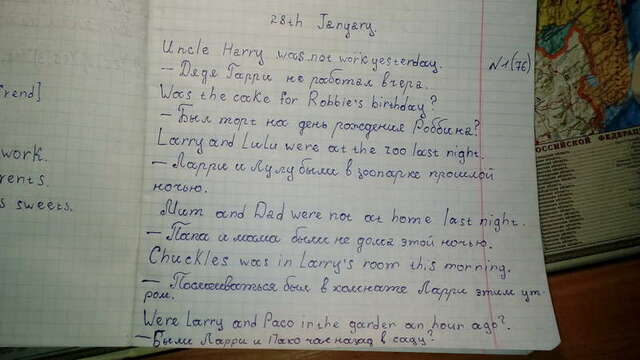 28th Janyary.
Uncle Harry was not work yesterday.
N1(76)
– Дядя Гарри не работал вчера.
Was the cake for Robbie's birthday?
– Был торт на день рождения Роббина?
Larry and Lulu were at the zoo last night.
– Ларри и Лулу были в зоопарке прошлой
ночью.
Mum and Dad were not at home last night.
– Папа и мама были не дома этой ночью.
Chuckles was in Larry's room this morning.
– Посмеиваться был в комнате Ларри этим ут-
ром.
Were Larry and Paco in the garden an hour ago?
– Были Ларри и Пако час назад в саду?
friend]
work.
rents.
s sweets.
РОССИЙСКОЙ ФЕДЕРАЦИ